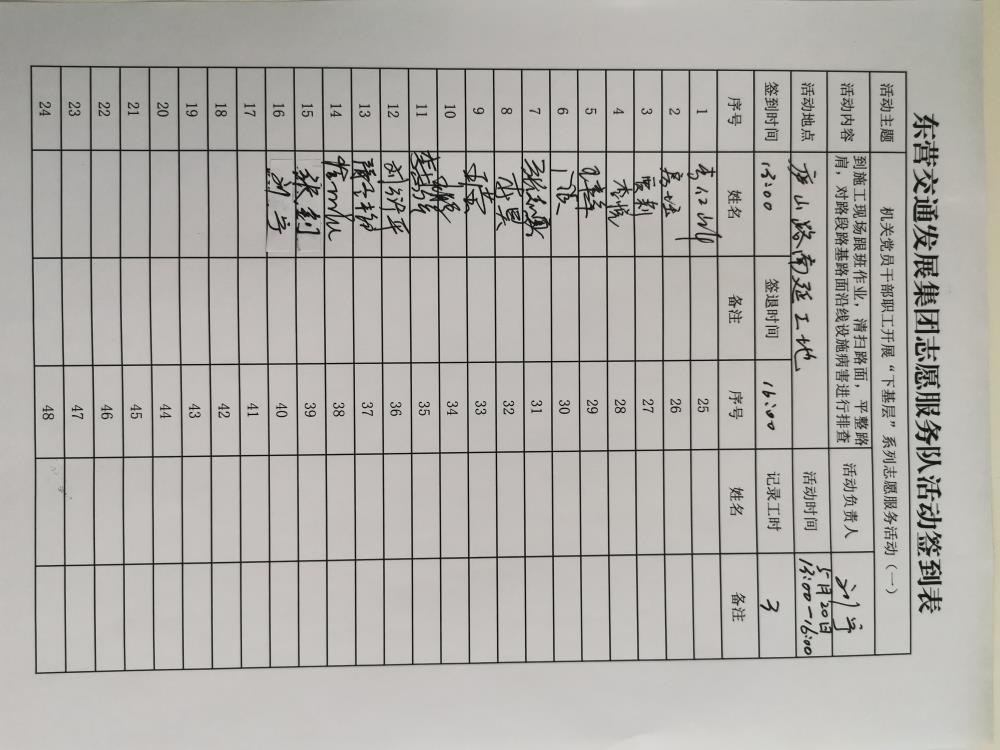 东营交通发展集团志愿服务队活动签到表
活动主题 机关党员干部职工开展“下基层”系列志愿服务活动（一）
活动内容 到施工现场跟班作业，清扫路面，平整路肩，对路段路基路面沿线设施病害进行排查 活动负责人 刘宁
活动地点 庐山路南延工地 活动时间 5月20日 13:00-16:00
签到时间 13:00 签退时间 16:00 记录工时 3
序号 姓名 备注 序号 姓名 备注
1 25
2 26
3 27
4 李悦 28
5 29
6 30
7 31
8 32
9 33
10 34
11 35
12 36
13 37
14 38
15 张钊 39
16 刘宁 40
17 41
18 42
19 43
20 44
21 45
22 46
23 47
24 48